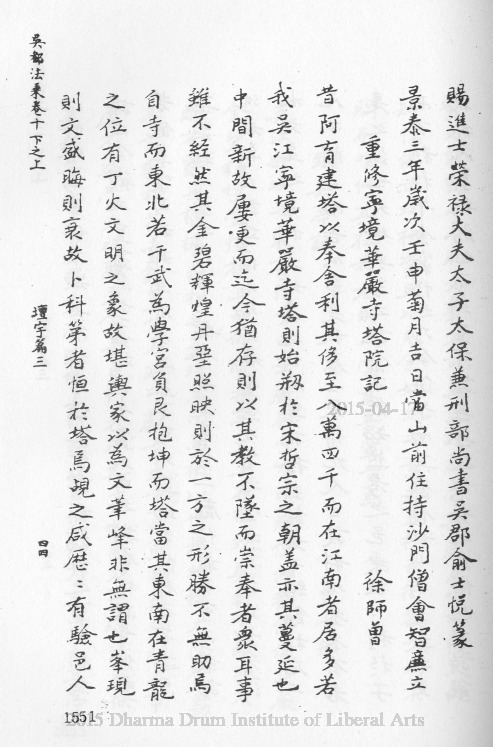 賜進士榮禄大夫太子太保兼刑部尚書吳郡俞士悦篆
景泰三年歲次壬申菊月吉日當山前住持沙門僧會智㢘立
重修寧境華嚴寺塔院記
徐師曾
昔阿育建塔以奉舍利其侈至八萬四千而在江南者居多若
我吳江寧境華嚴寺塔則始剏於宋哲宗之朝盖亦其蔓延也
中間新故屢更而迄今猶存則以其教不墜而崇奉者衆耳事
雖不經然其金碧輝煌丹堊照映則於一方之形勝不無助焉
自寺而東北若干武為學宮負艮抱坤而塔當其東南在青龍
之位有丁火文明之象故堪輿家以為文筆峰非無謂也峯現
則文盛晦則衰故卜科第者恒於塔焉覘之咸歷歷有驗邑人
吳都法乘卷十下之上
壇宇篇三
四四
1551
2015-04-17
2015 Dharma Drum Institute of Liberal Arts